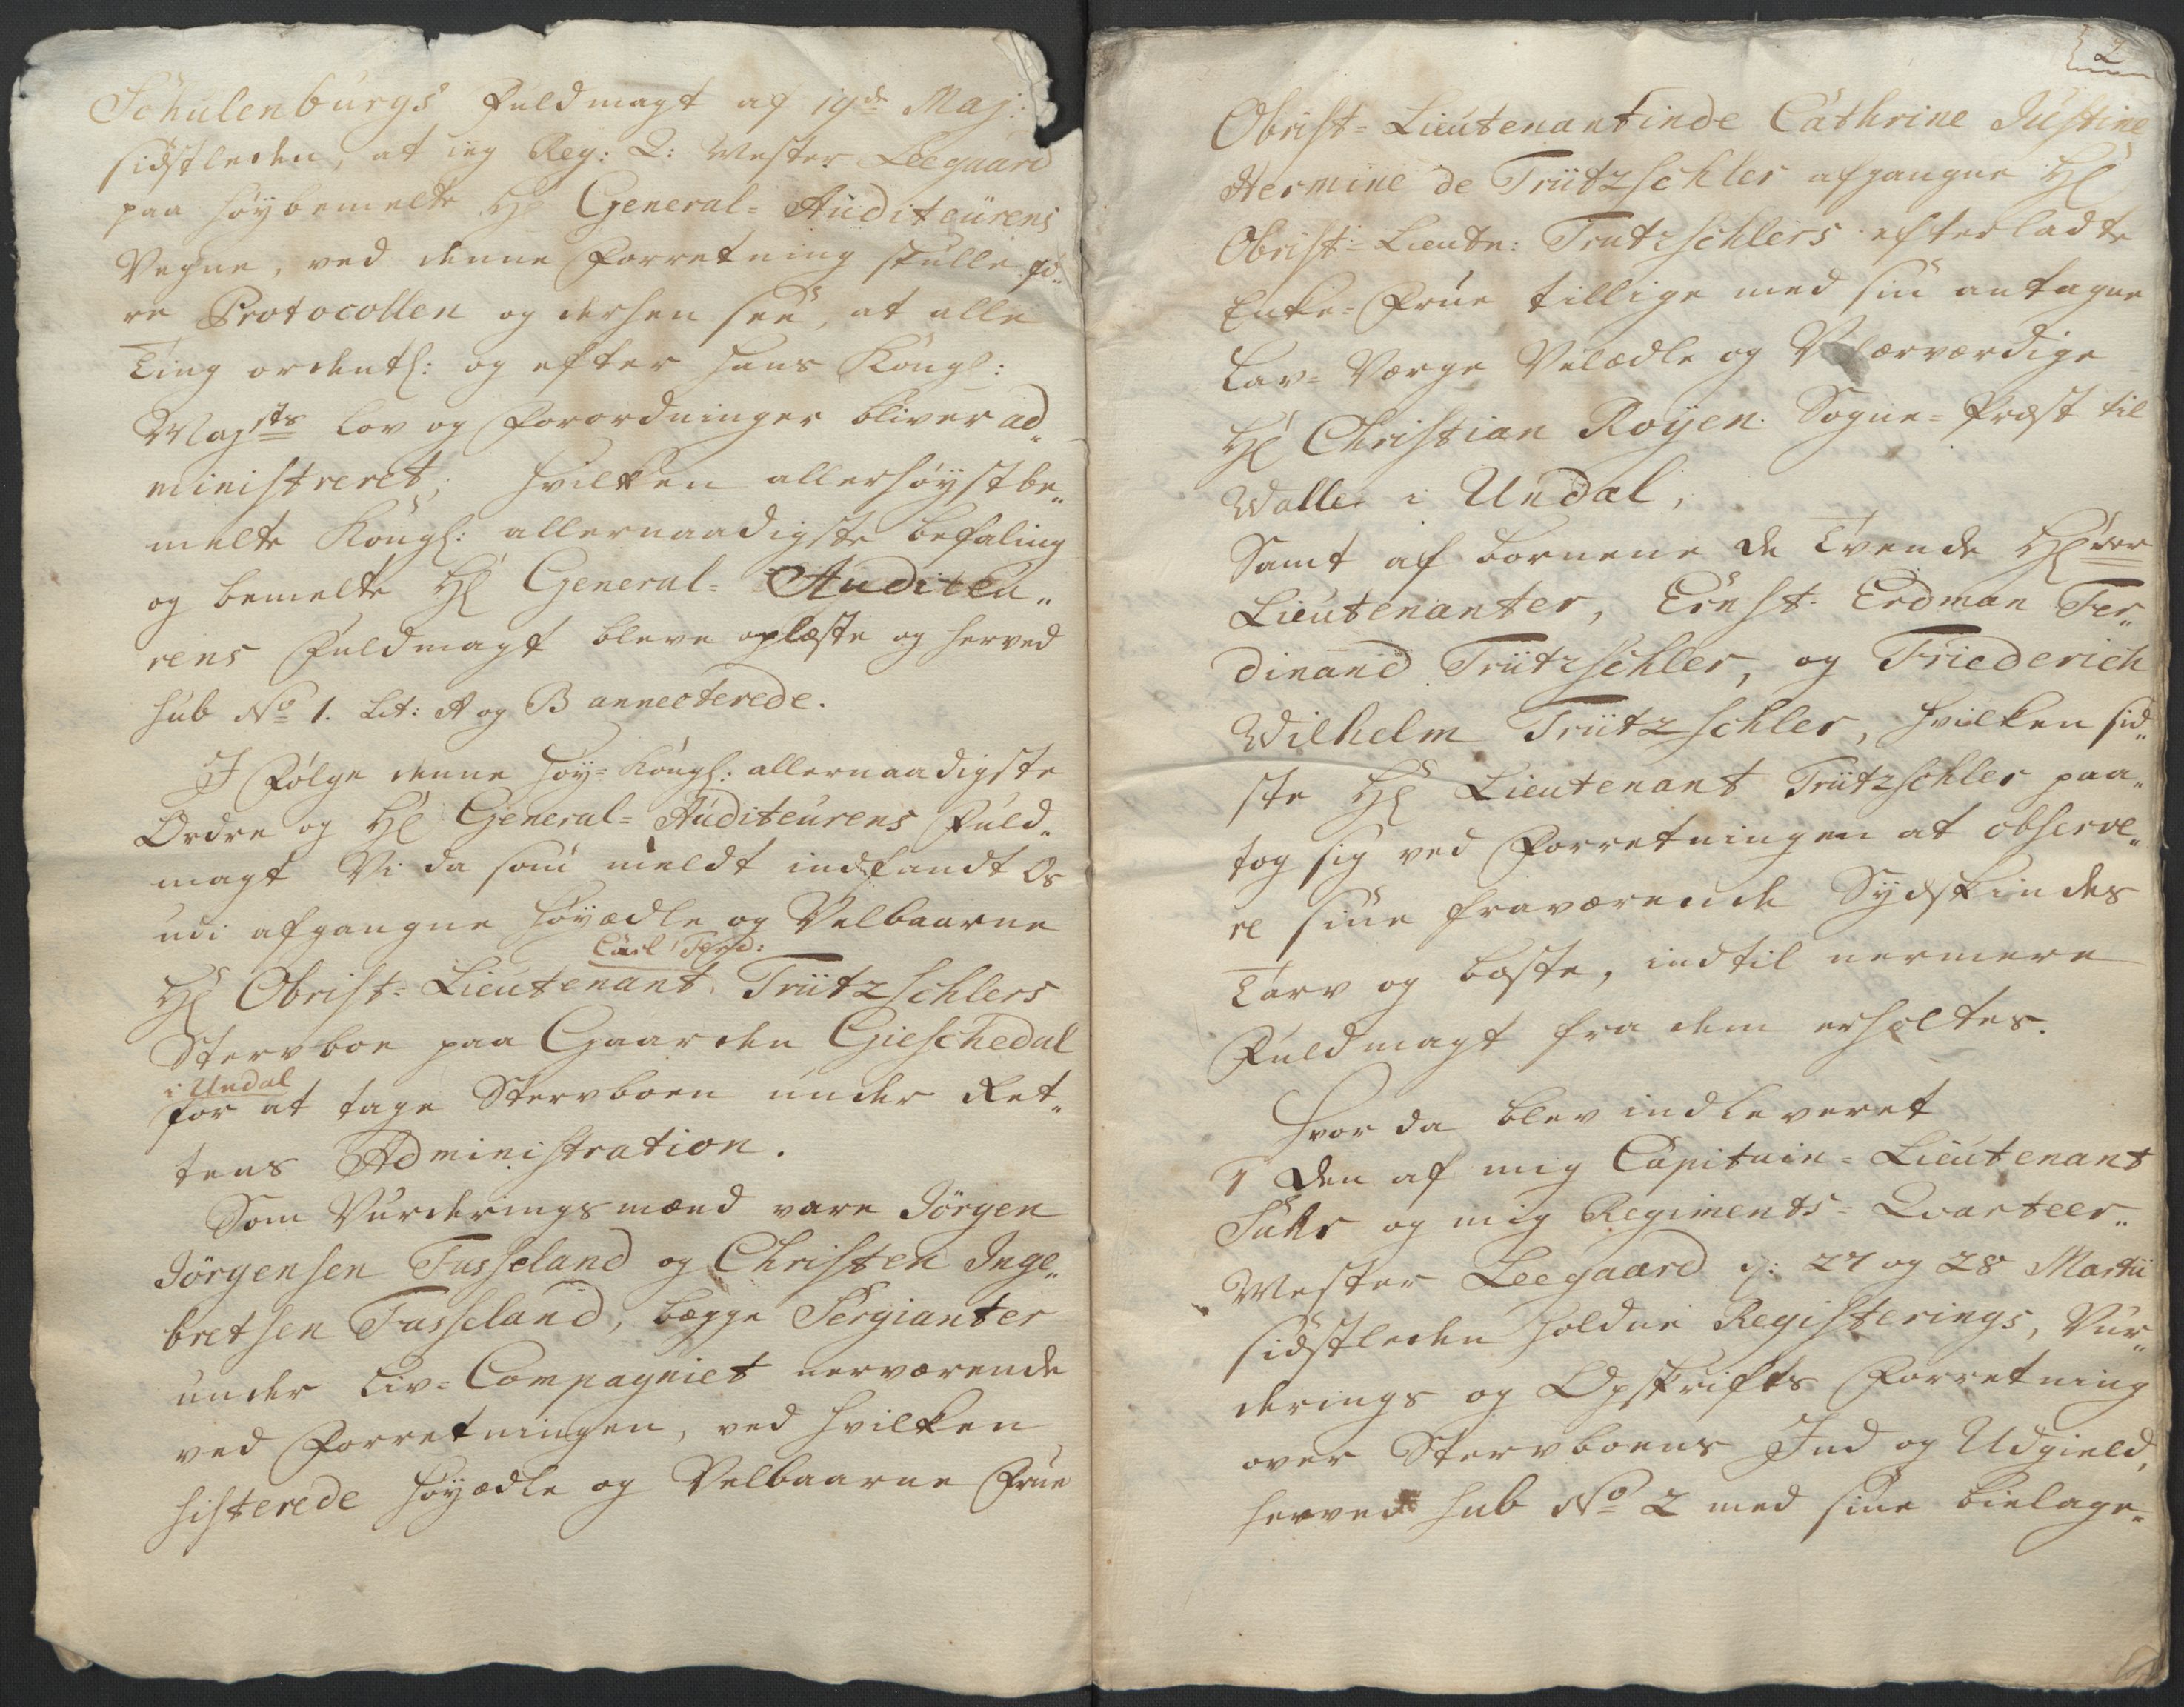 Schulenburgs Fuldmagt af 19de Maj:
sidstleden, at ieg Reg: Q: Mester Leegaard
paa høybemelte Hr General-Auditeurens
Vegne, ved denne Forretning skulle fø-
re Protocollen og dersen see, at alle
Ting ordentl: og efter Hans Kongl:
Majsts Lov og Forordninger bliver ad-
ministreret; hvilken allerhøystbe-
melte Kongl: allernaadigste Befaling
og bemelte Hr General-Auditeu-
rens Fuldmagt bleve oplæste og herved
sub No 1. Lit: A og B annecterede.
I Følge denne høy-Kongl: allernaadigste
Ordre og Hr General-Auditeurens Fuld-
magt Vi da som meldt indfandt Os
udi afgangne Høyædle og Velbaarne
Carl Ferd:
Hr Obrist-Lieutenant Trützschlers
Stervboe paa Gaarden Gieschedal
i Undal
for at tage Stervboen under Ret-
tens Administration.
Som Vurderingsmænd vare Jörgen
Jörgensen Fusseland og Christen Inge-
bretsen Fusseland, begge Sergianter
under Liv-Compagniet nerværende
ved Forretningen, ved hvilken
sisterede Høyædle og Velbaarne Frue
2
Obrist-Lieutenantinde Cathrine Justine
Hermine de Trützschler afgangne Hr
Obrist-Lieutn: Trutzschlers efterladte
Enke-Frue tillige med sin antagne
Lav-Værge Velædle og Velærværdige
Hr Christian Roÿen Sogne-Præst til
Walle i Undal,
Samt af Børnene de Tvende Hrrer
Lieutenanter, Ernst Erdman Fer-
dinand Trützschler, og Friederich
Wilhelm Trützschler, hvilken sid-
ste Hr Lieutenant Trützschler paa-
tog sig ved Forretningen at observe-
re sine fraværende Sydskindes
Tarv og bæste, indtil nermere
Fuldmagt fra dem erholtes.
Hvor da blev indleveret
1 Den af mig Capitain-Lieutenant
Suhr og mig Regiments-Qvarteer-
Mester Leegaard d: 27 og 28 Martii
sidstleden holdne Registerings, Vur-
derings og Opskrifts Forretning
over Stervboens Ind og Udgield,
herved sub No 2 med sine bielage-